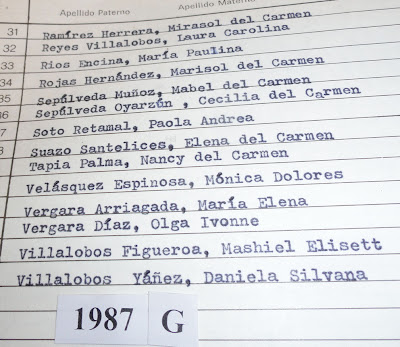 Apellido Paterno Apellido Materno
31 Ramírez Herrera, Mirasol del Carmen
32 Reyes Villalobos, Laura Carolina
33 Rios Encina, María Paulina
34 Rojas Hernández, Marisol del Carmen
35 Sepúlveda Muñoz, Mabel del Carmen
36 Sepúlveda Oyarzún, Cecilia del Carmen
7 Soto Retamal, Paola Andrea
8 Suazo Santelices, Elena del Carmen
Tapia Palma, Nancy del Carmen
Velásquez Espinosa, Mónica Dolores
Vergara Arriagada, María Elena
Vergara Díaz, Olga Ivonne
Villalobos Figueroa, Mashiel Elisett
Villalobos Yáñez, Daniela Silvana
1987 G